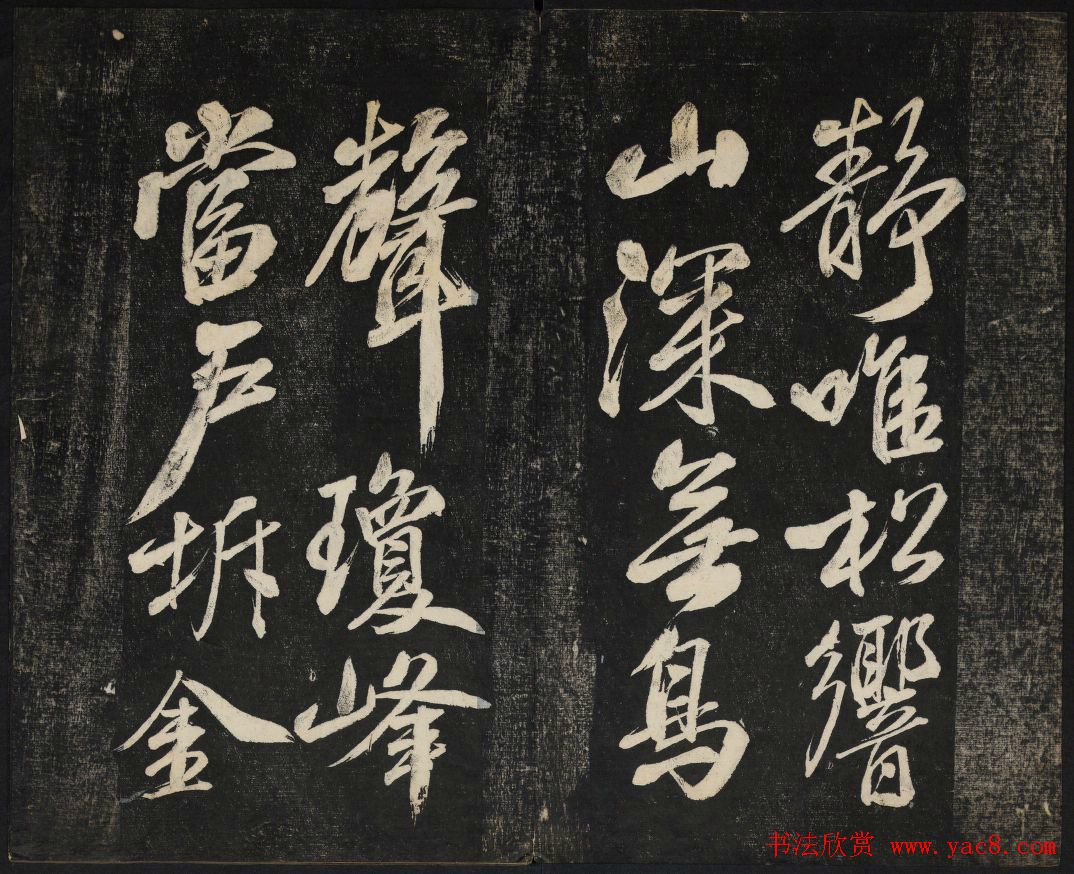 靜唯松響
山深無鳥
聲瓊峰
當户坼金
书法欣赏 www.yac8.com